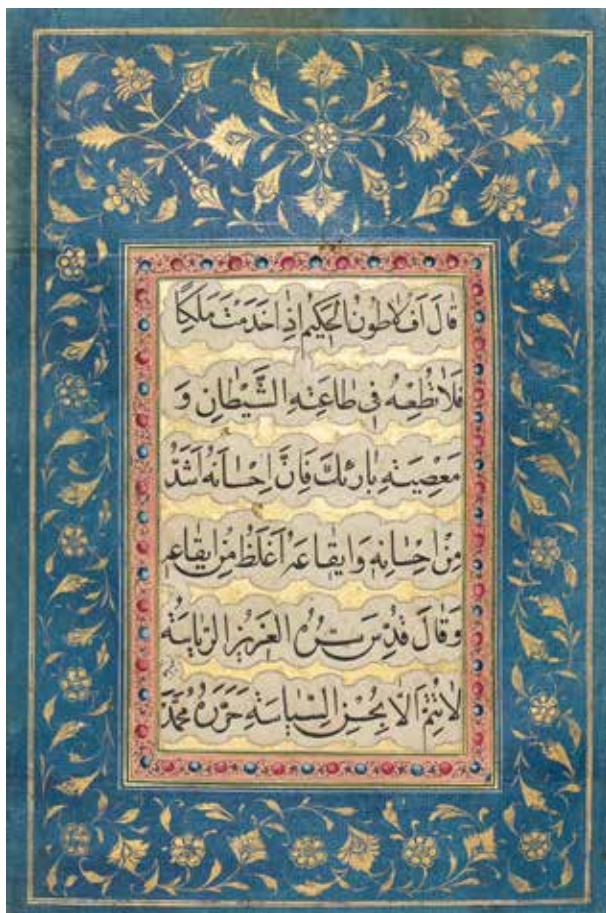 قَالَ اَفْلَاطُونُ الْحَكِيمُ اِذَا خَدَمْتَ مَلَكًا
فَلَا تُطِعْهُ فِي طَاعَتِهِ الشَّيْطَانِ وَ
مَعْصِيَتِهِ بَارِئَكَ فَاِنَّ اِحْسَانَهُ اَشَدُّ
مِنْ اِحْسَانِهِ وَ اِيقَاعَهُ اَغْلَظُ مِنْ اِيقَاعِهِ
وَقَالَ قُدِّسَ سِرُّهُ الْعَزِيزُ الرِّيَاسَةُ
لَا تَتِمُّ اَلَّا بِحُسْنِ السِّيَاسَةِ حَرَّرَهُ مُحَمَّد